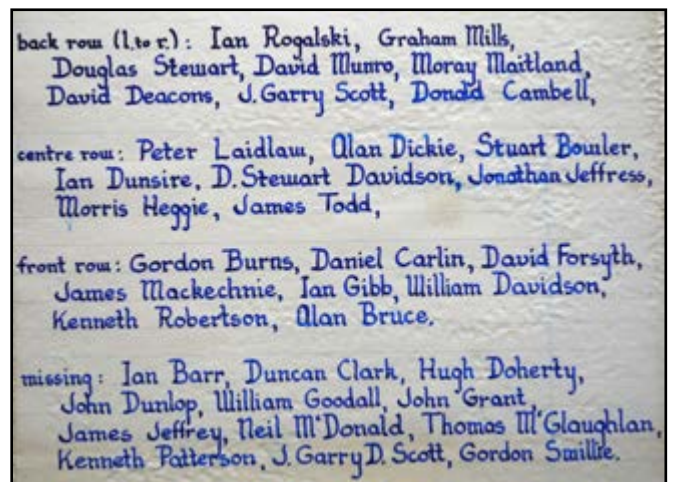 back row (l. to r.): Ian Rogalski, Graham Mills,
Douglas Stewart, David Munro, Moray Maitland,
David Deacons, J. Garry Scott, Donald Cambell,
centre row: Peter Laidlaw, Alan Dickie, Stuart Bowler,
Ian Dunsire, D. Stewart Davidson, Jonathan Jeffress,
Morris Heggie, James Todd,
front row: Gordon Burns, Daniel Carlin, David Forsyth,
James Mackechnie, Ian Gibb, William Davidson,
Kenneth Robertson, Alan Bruce.
missing: Ian Barr, Duncan Clark, Hugh Doherty,
John Dunlop, William Goodall, John Grant,
James Jeffrey, Neil McDonald, Thomas McGlaughlan,
Kenneth Patterson, J. Garry D. Scott, Gordon Smillie.